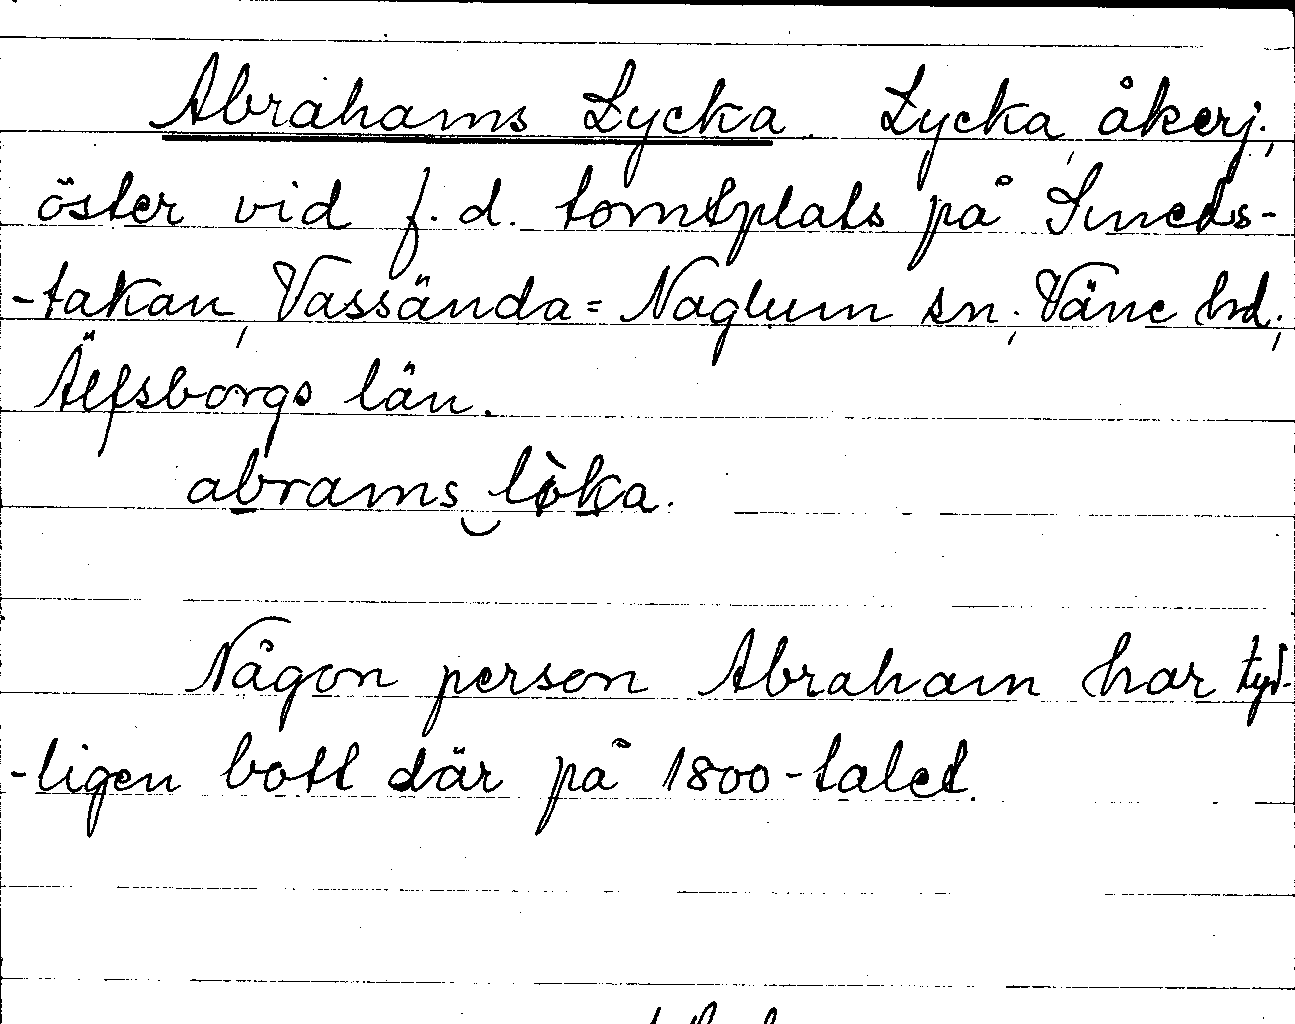 Abrahams Lycka. Lycka, åkerj.,
öster vid f.d. tomtplats på Smeds-
-takan, Vassända=Naglum sn., Väne hd.,
Älfsborgs län.
abrams lòka.
Någon person Abraham har tyd-
-ligen bott där på 1800-talet.